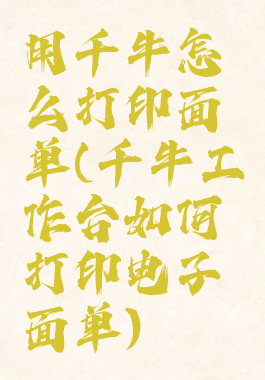 用千牛怎
么打印面
单(千牛工
作台如何
打印电子
面单)